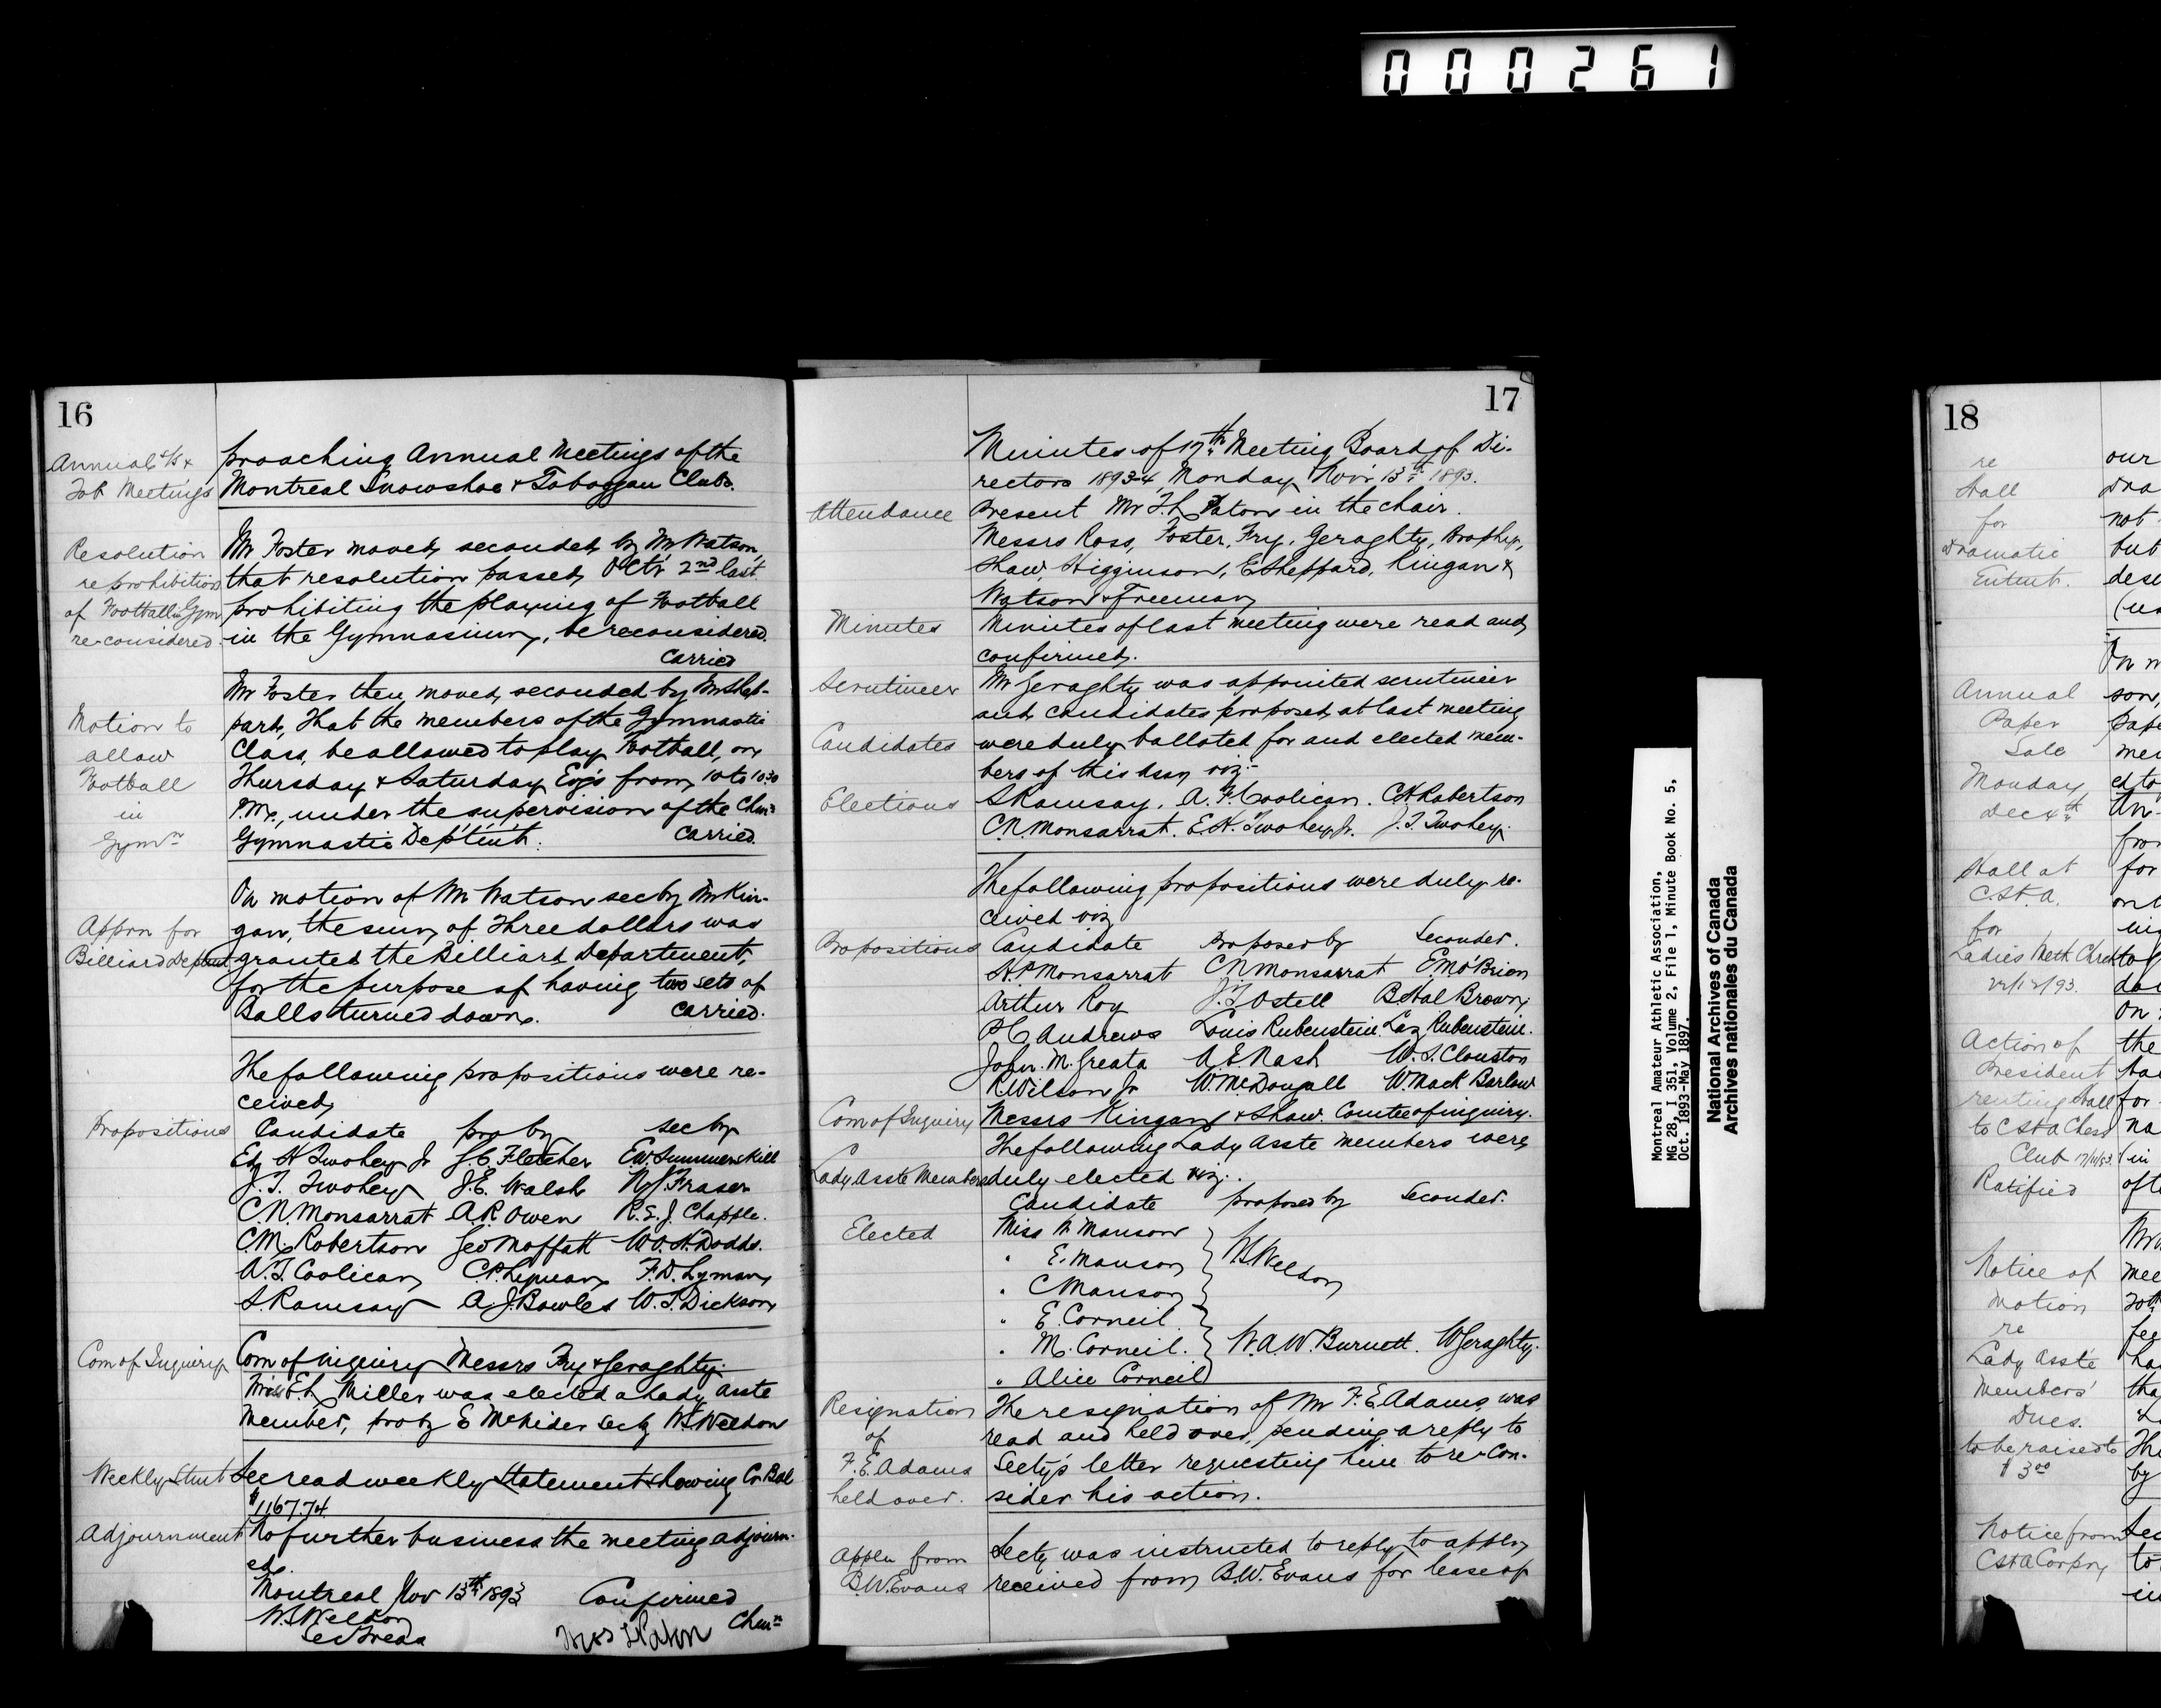 000261
16
Annual S/S &
Tob Meetings
proaching Annual Meetings of the
Montreal Snowshoe & Toboggan Clubs.
Resolution
re prohibition
of Football in Gym
re-considered
Mr Foster moved, seconded by Mr Watson,
that resolution passed, Oct'r 2nd last.
prohibiting the playing of Football
in the Gymnasium, be reconsidered.
Carried
Motion to
allow
Football
in
Gymn
Mr Foster then moved, seconded by Mr Shep-
pard, That the members of the Gymnastic
Class, be allowed to play Football, on
Thursday & Saturday Evg's from 10 to 10.30
P.M., under the supervision of the Chn
Gymnastic Dep't'm't. Carried.
Apprn for
Billiard Deptmt
On motion of Mr Watson sec by Mr Kin-
gan, the sum of Three dollars was
granted the Billiard Department,
for the purpose of having two sets of
Balls turned down. Carried.
The following propositions were re-
ceived,
Propositions
Candidate pro by sec by
Ed H Twohey Jr J.C. Fletcher E.W. Summerskill
J.T. Twohey J.E. Walsh R.J. Fraser
C.N. Monsarrat A.R. Owen R.E.J. Chapple.
C.M. Robertson Geo Moffatt W.O.H. Dodds.
A.T. Coolican C.P. Lyman F.D. Lyman
S. Ramsay A.J. Bowles W.T. Dickson
Com of Inquiry
Com of inquiry Messrs Fry & Geraghty.
Miss E.L. Miller was elected a Lady Asste
Member, pro by E McNider sec by W.S. Weldon
Weekly Stmt
Sec read weekly Statement showing Cr. Bal
$1167.74
Adjournment
No further business the meeting adjourn-
ed.
Montreal Nov 13th 1893 Confirmed
W.S. Weldon
Sec Treas
Thos L Paton Chmn
17
Minutes of 17th Meeting Board of Di-
rectors 1893-4, Monday, Nov'r 13th 1893.
Attendance
Present Mr T.L. Paton in the chair.
Messrs Ross, Foster, Fry, Geraghty, Brophy,
Shaw, Higginson, E Sheppard, Kingan &
Watson & Freeman
Minutes
Minutes of last meeting were read and,
confirmed.
Scrutineer
Mr Geraghty was appointed scrutineer
and, candidates proposed, at last meeting
Candidates
were duly balloted for and elected mem-
bers of this Assn viz:-
Elections
S Ramsay. A.T. Coolican. C.M. Robertson
C.N. Monsarrat. E.H. Twohey Jr. J.T. Twohey.
The following propositions were duly re-
ceived viz
Propositions
Candidate Proposed by Seconder.
H.P. Monsarrat C.N. Monsarrat E.M. O'Brien
Arthur Roy J.T. Ostell B. Hal Brown
P.C. Andrews Louis Rubenstein Laz Rubenstein.
John. M. Greata A.E. Nash W.S. Clouston
R. Wilson Jr W. McDougall W. Mack Barlow
Com of Inquiry
Messrs Kingan & Shaw. Comtee of inquiry.
The following Lady Asste members were
Lady Asste Members
duly elected viz:
Candidate proposed by Seconder.
Elected
Miss M Manson
" E. Manson W.S. Weldon
" C Manson
" E. Corneil
" M. Corneil. W.A.W. Burnett. W Geraghty.
" Alice Corneil
Resignation
of
F.E. Adams
held over.
The resignation of Mr F.E. Adams, was
read and held over, pending a reply to
Secty's letter requesting him to re-con-
sider his action.
Appln from
B.W. Evans
Secty was instructed to reply to appln
received from B.W. Evans for lease of
Montreal Amateur Athletic Association,
MG 28, I 351, Volume 2, File 1, Minute Book No. 5,
Oct. 1893-May 1897.
National Archives of Canada
Archives nationales du Canada
18
re
Hall
for
Dramatic
Entmt.
our
Dra
not
but
des
Annual
Paper
Sale
Monday,
Dec 4th
On m
son,
pape
mee
ed to
Hall at
C.St.A.
for
Ladies Meth Chrch
22/12/93.
for
on
Action of
President
renting Hall
to CStA Chess
Club 17/11/93.
Ratified
On
the
for
na
(in
of t
Notice of
motion
re
Lady Asste
Members'
Dues.
to be raised to
$3.00
mee
fee
ha
tha
The
by
Notice from
CStA Corpn
Sec
to
in